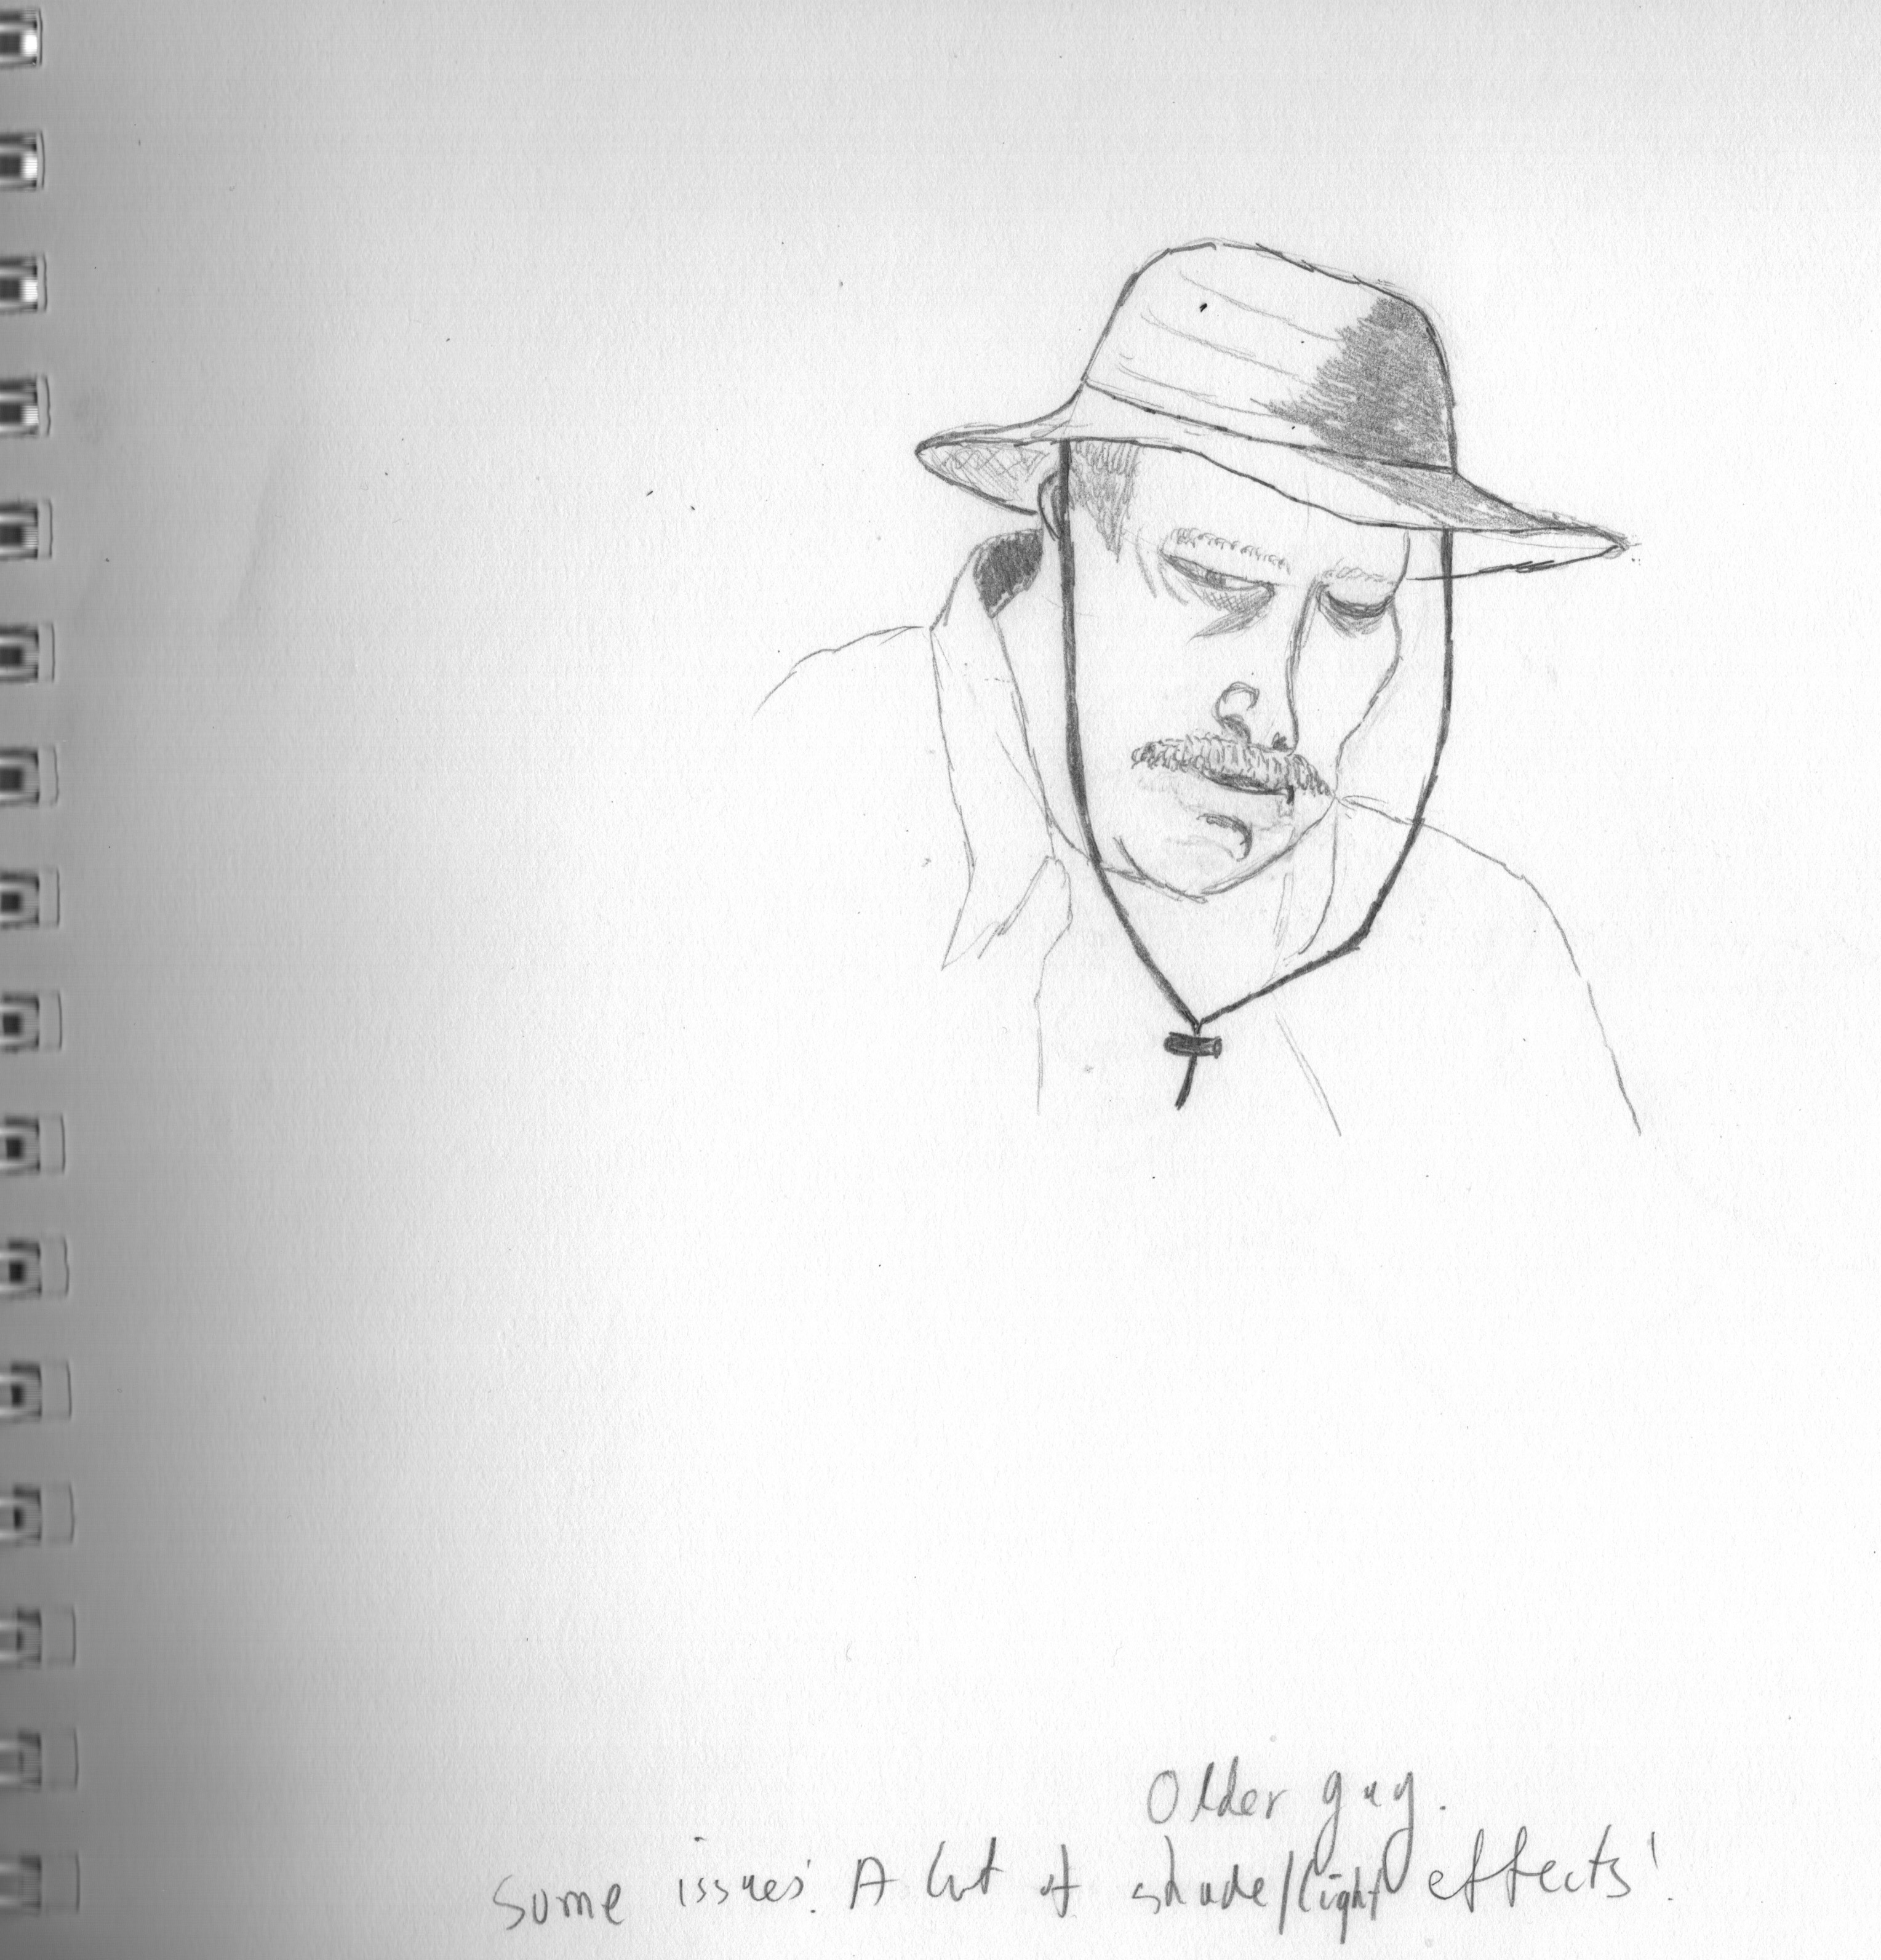 Older guy.
Some issues! A lot of shade/light effects!